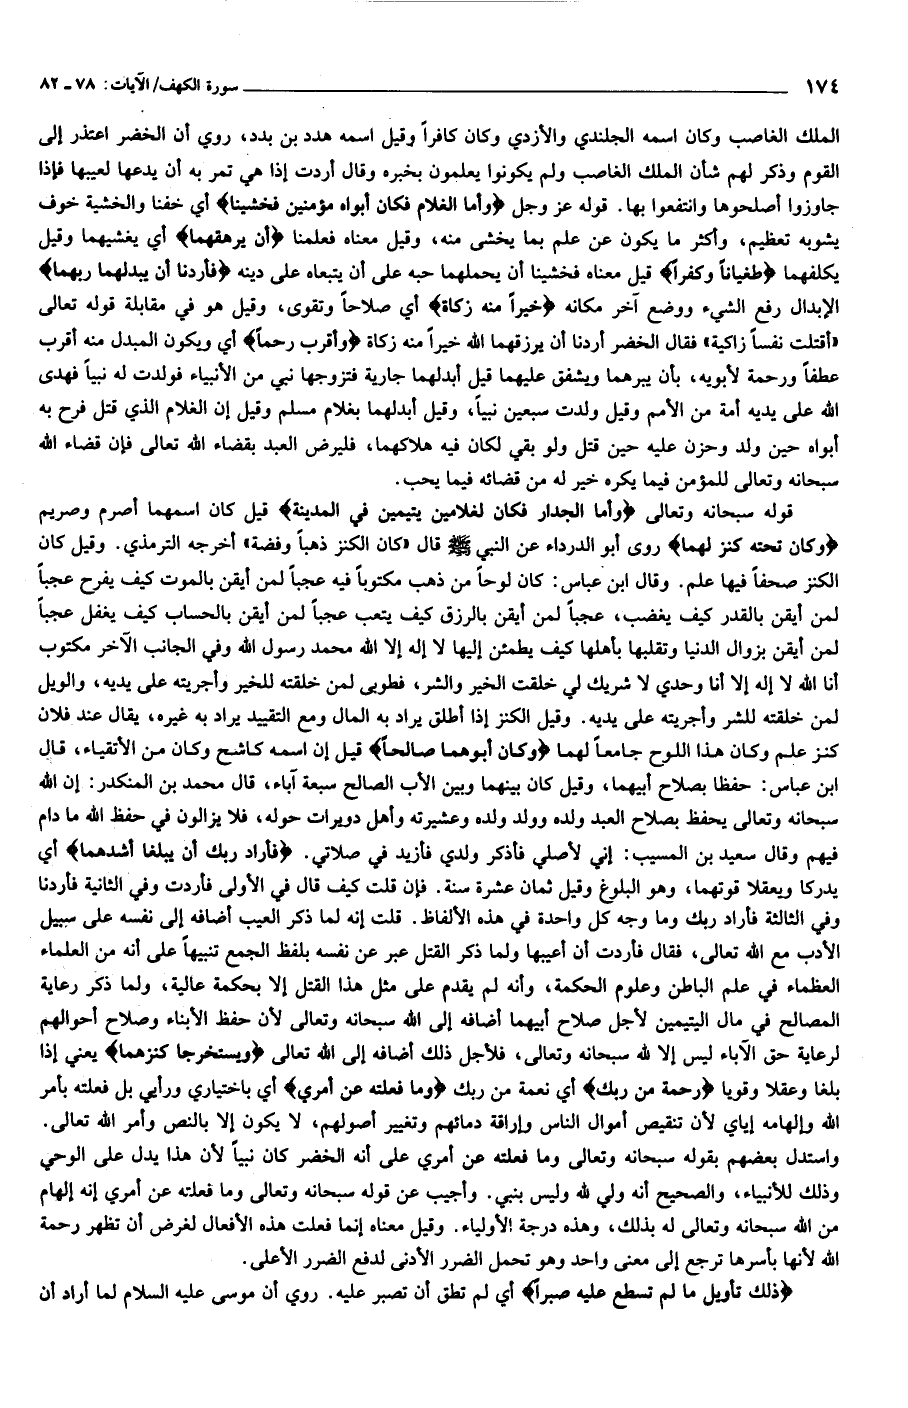 ١٧٤ سورة الكهف/ الآيات: ٧٨ ـ ٨٢
الملك الغاصب وكان اسمه الجلندي والأزدي وكان كافراً وقيل اسمه هدد بن بدد، روي أن الخضر اعتذر إلى
القوم وذكر لهم شأن الملك الغاصب ولم يكونوا يعلمون بخبره وقال أردت إذا هي تمر به أن يدعها لعيبها فإذا
جاوزوا أصلحوها وانتفعوا بها. قوله عز وجل ﴿وأما الغلام فكان أبواه مؤمنين فخشينا﴾ أي خفنا والخشية خوف
يشوبه تعظيم، وأكثر ما يكون عن علم بما يخشى منه، وقيل معناه فعلمنا ﴿أن يرهقهما﴾ أي يغشيهما وقيل
يكلفهما ﴿طغياناً وكفراً﴾ قيل معناه فخشينا أن يحملهما حبه على أن يتبعاه على دينه ﴿فأردنا أن يبدلهما ربهما﴾
الإبدال رفع الشيء ووضع آخر مكانه ﴿خيراً منه زكاة﴾ أي صلاحاً وتقوى، وقيل هو في مقابلة قوله تعالى
«أقتلت نفساً زاكية» فقال الخضر أردنا أن يرزقهما الله خيراً منه زكاة ﴿وأقرب رحماً﴾ أي ويكون المبدل منه أقرب
عطفاً ورحمة لأبويه، بأن يبرهما ويشفق عليهما قيل أبدلهما جارية فتزوجها نبي من الأنبياء فولدت له نبياً فهدى
الله على يديه أمة من الأمم وقيل ولدت سبعين نبياً، وقيل أبدلهما بغلام مسلم وقيل إن الغلام الذي قتل فرح به
أبواه حين ولد وحزن عليه حين قتل ولو بقي لكان فيه هلاكهما، فليرض العبد بقضاء الله تعالى فإن قضاء الله
سبحانه وتعالى للمؤمن فيما يكره خير له من قضائه فيما يحب.
قوله سبحانه وتعالى ﴿وأما الجدار فكان لغلامين يتيمين في المدينة﴾ قيل كان اسمهما أصرم وصريم
﴿وكان تحته كنز لهما﴾ روى أبو الدرداء عن النبي ﷺ قال «كان الكنز ذهباً وفضة» أخرجه الترمذي. وقيل كان
الكنز صحفاً فيها علم. وقال ابن عباس: كان لوحاً من ذهب مكتوباً فيه عجباً لمن أيقن بالموت كيف يفرح عجباً
لمن أيقن بالقدر كيف يغضب، عجباً لمن أيقن بالرزق كيف يتعب عجباً لمن أيقن بالحساب كيف يغفل عجباً
لمن أيقن بزوال الدنيا وتقلبها بأهلها كيف يطمئن إليها لا إله إلا الله محمد رسول الله وفي الجانب الآخر مكتوب
أنا الله لا إله إلا أنا وحدي لا شريك لي خلقت الخير والشر، فطوبى لمن خلقته للخير وأجريته على يديه، والويل
لمن خلقته للشر وأجريته على يديه. وقيل الكنز إذا أطلق يراد به المال ومع التقييد يراد به غيره، يقال عند فلان
كنز علم وكان هذا اللوح جامعاً لهما ﴿وكان أبوهما صالحاً﴾ قيل إن اسمه كاشح وكان من الأتقياء، قال
ابن عباس: حفظا بصلاح أبيهما، وقيل كان بينهما وبين الأب الصالح سبعة آباء، قال محمد بن المنكدر: إن الله
سبحانه وتعالى يحفظ بصلاح العبد ولده وولد ولده وعشيرته وأهل دويرات حوله، فلا يزالون في حفظ الله ما دام
فيهم وقال سعيد بن المسيب: إني لأصلي فأذكر ولدي فأزيد في صلاتي. ﴿فأراد ربك أن يبلغا أشدهما﴾ أي
يدركا ويعقلا قوتهما، وهو البلوغ وقيل ثمان عشرة سنة. فإن قلت كيف قال في الأولى فأردت وفي الثانية فأردنا
وفي الثالثة فأراد ربك وما وجه كل واحدة في هذه الألفاظ. قلت إنه لما ذكر العيب أضافه إلى نفسه على سبيل
الأدب مع الله تعالى، فقال فأردت أن أعيبها ولما ذكر القتل عبر عن نفسه بلفظ الجمع تنبيهاً على أنه من العلماء
العظماء في علم الباطن وعلوم الحكمة، وأنه لم يقدم على مثل هذا القتل إلا بحكمة عالية، ولما ذكر رعاية
المصالح في مال اليتيمين لأجل صلاح أبيهما أضافه إلى الله سبحانه وتعالى لأن حفظ الأبناء وصلاح أحوالهم
لرعاية حق الآباء ليس إلا لله سبحانه وتعالى، فلأجل ذلك أضافه إلى الله تعالى ﴿ويستخرجا كنزهما﴾ يعني إذا
بلغا وعقلا وقويا ﴿رحمة من ربك﴾ أي نعمة من ربك ﴿وما فعلته عن أمري﴾ أي باختياري ورأيي بل فعلته بأمر
الله وإلهامه إياي لأن تنقيص أموال الناس وإراقة دمائهم وتغيير أصولهم، لا يكون إلا بالنص وأمر الله تعالى.
واستدل بعضهم بقوله سبحانه وتعالى وما فعلته عن أمري على أنه الخضر كان نبياً لأن هذا يدل على الوحي
وذلك للأنبياء، والصحيح أنه ولي لله وليس بنبي. وأجيب عن قوله سبحانه وتعالى وما فعلته عن أمري إنه إلهام
من الله سبحانه وتعالى له بذلك، وهذه درجة الأولياء. وقيل معناه إنما فعلت هذه الأفعال لغرض أن تظهر رحمة
الله لأنها بأسرها ترجع إلى معنى واحد وهو تحمل الضرر الأدنى لدفع الضرر الأعلى.
﴿ذلك تأويل ما لم تسطع عليه صبراً﴾ أي لم تطق أن تصبر عليه. روي أن موسى عليه السلام لما أراد أن